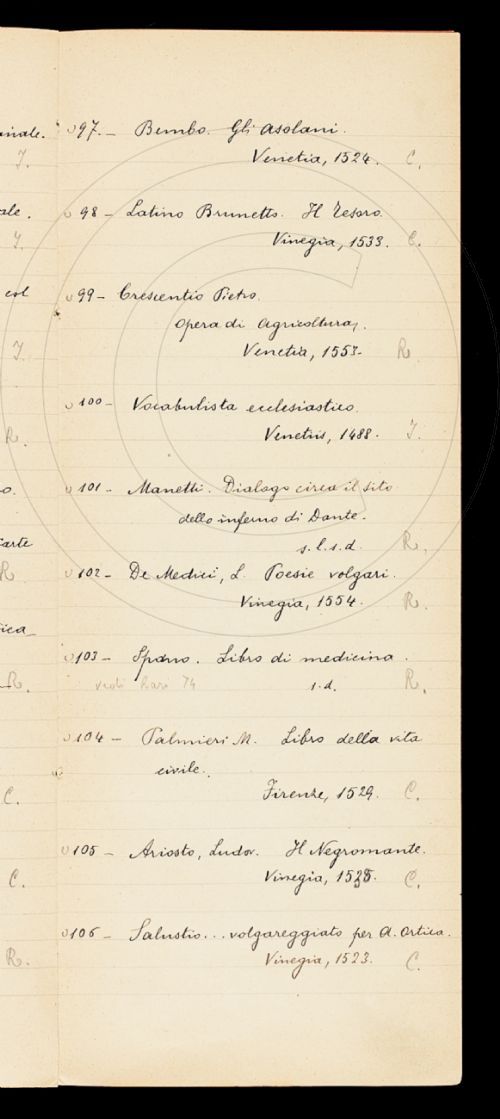 anale.
J.
ale.
J.
col
J.
R.
o.
Carte
R
ica
R.
C.
C.
R.
97. - Bembo. Gli Asolani.
Venetia, 1524. C.
98 - Latino Brunetto. Il Tesoro.
Vinegia, 1533. C.
99 - Crescentio Pietro.
Opera di Agricoltura,.
Venetia, 1553. R.
100 - Vocabulista ecclesiastico.
Venetiis, 1488. J.
101 - Manetti. Dialogo circa il sito
dello inferno di Dante.
s. l. s. d. R.
102 - De Medici, L. Poesie volgari.
Vinegia, 1554. R.
103 - Spano. Libro di medicina.
vedi 74
s. d. R.
104 - Palmieri M. Libro della vita
civile.
Firenze, 1529. C.
105 - Ariosto, Ludov. Il Negromante.
Vinegia, C.
106 - Salustio... volgareggiato per A. Ortica.
Vinegia, 1523. C.